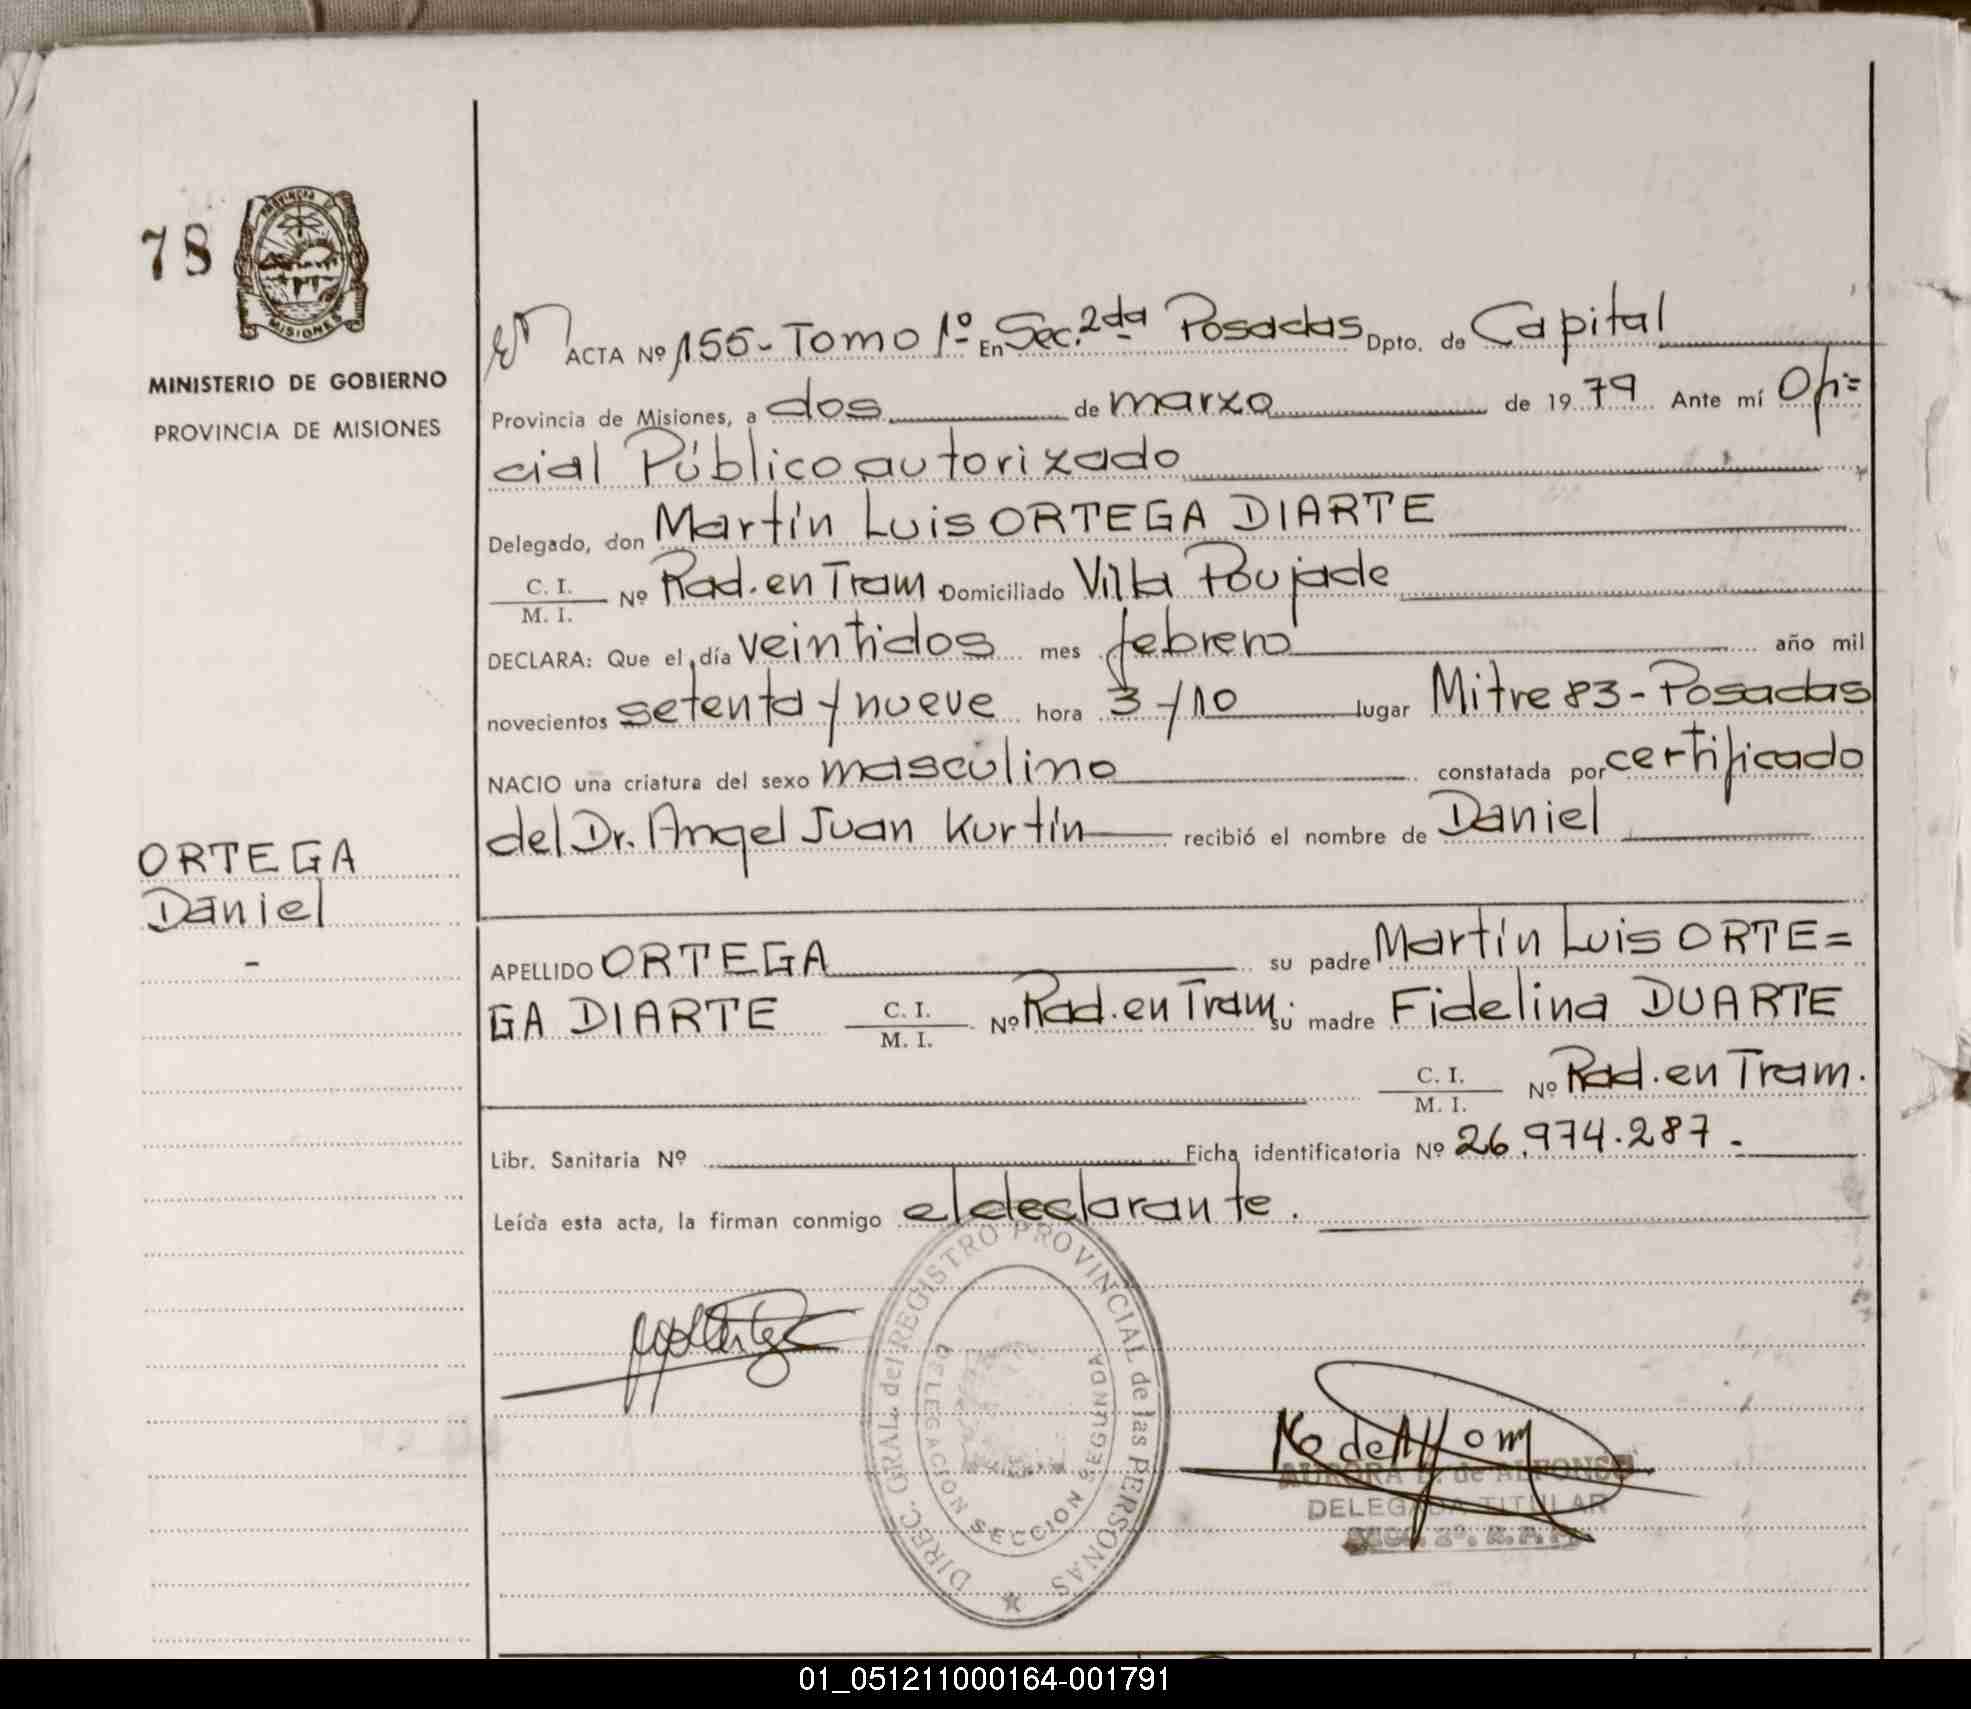 78
PROVINCIA D
MISIONES
MINISTERIO DE GOBIERNO
PROVINCIA DE MISIONES
ACTA Nº 155- Tomo 1º En Sec. 2da Posadas Dpto. de Capital
Provincia de Misiones, a dos de marzo de 1979 Ante mí Ofi=
cial Público autorizado
Delegado, don Martín Luis ORTEGA DIARTE
C. I.
M. I. Nº Rad. en Tram Domiciliado Villa Poujade
DECLARA: Que el día veintidos mes febrero año mil
novecientos setenta y nueve hora 3/10 lugar Mitre 83 - Posadas
NACIO una criatura del sexo masculino constatada por certificado
del Dr. Angel Juan Kurtín recibió el nombre de Daniel
ORTEGA
Daniel
-
APELLIDO ORTEGA su padre Martín Luis ORTE=
GA DIARTE C. I. M. I. Nº Rad. en Tram. su madre Fidelina DUARTE
C. I. M. I. Nº Rad. en Tram.
Libr. Sanitaria Nº Ficha identificatoria Nº 26.974.287.-
Leída esta acta, la firman conmigo el declarante.
DIREC. GRAL. del REGISTRO PROVINCIAL de las PERSONAS
DELEGACION SECCION SEGUNDA
AURORA de ALFONSO
DELEGADA TITULAR
01_051211000164-001791